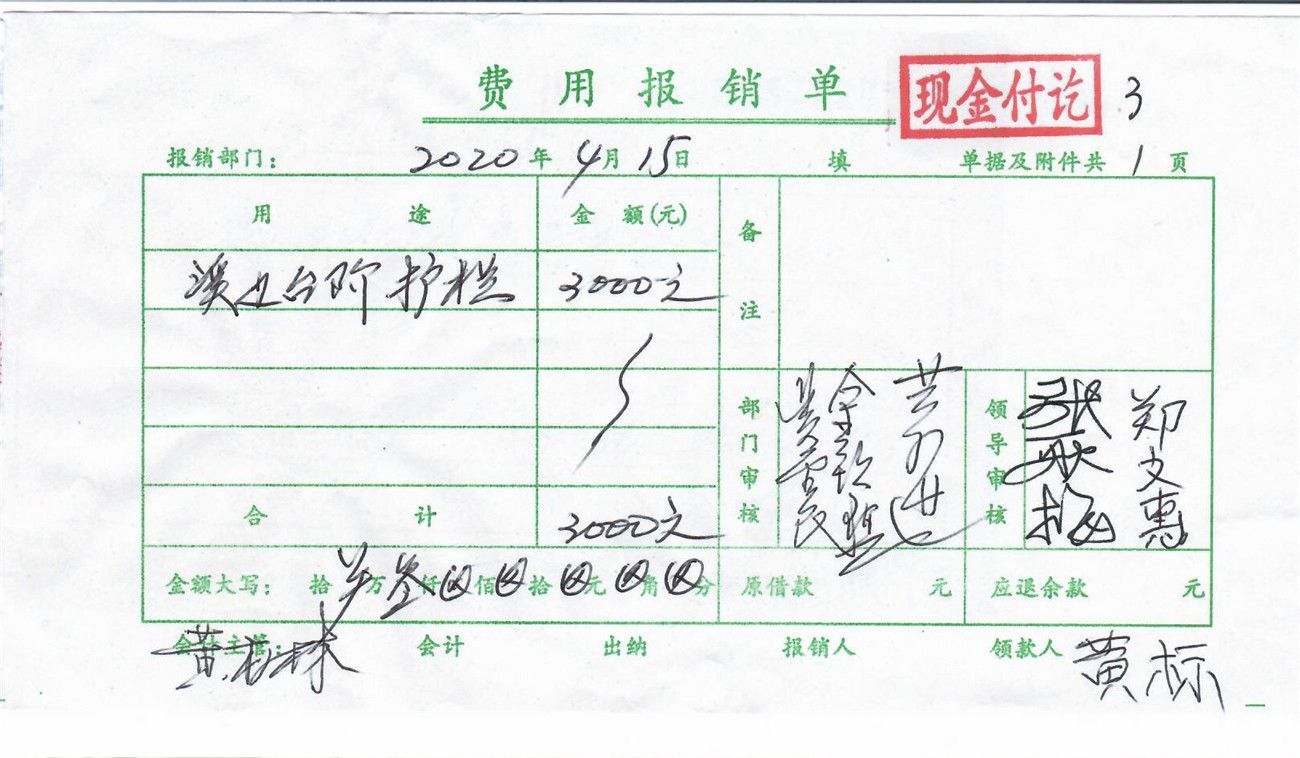 费用报销单 现金付讫 3
报销部门： 2020年4月15日 填 单据及附件共1页
用途 金额(元) 备注
溪边台阶护栏 3000元
部门审核 领导审核 张耿梅 郑文惠
合计 3000元
金额大写： 拾 万叁仟 佰 拾 元 角 分 原借款 元 应退余款 元
会计主管： 会计 出纳 报销人 领款人 黄标